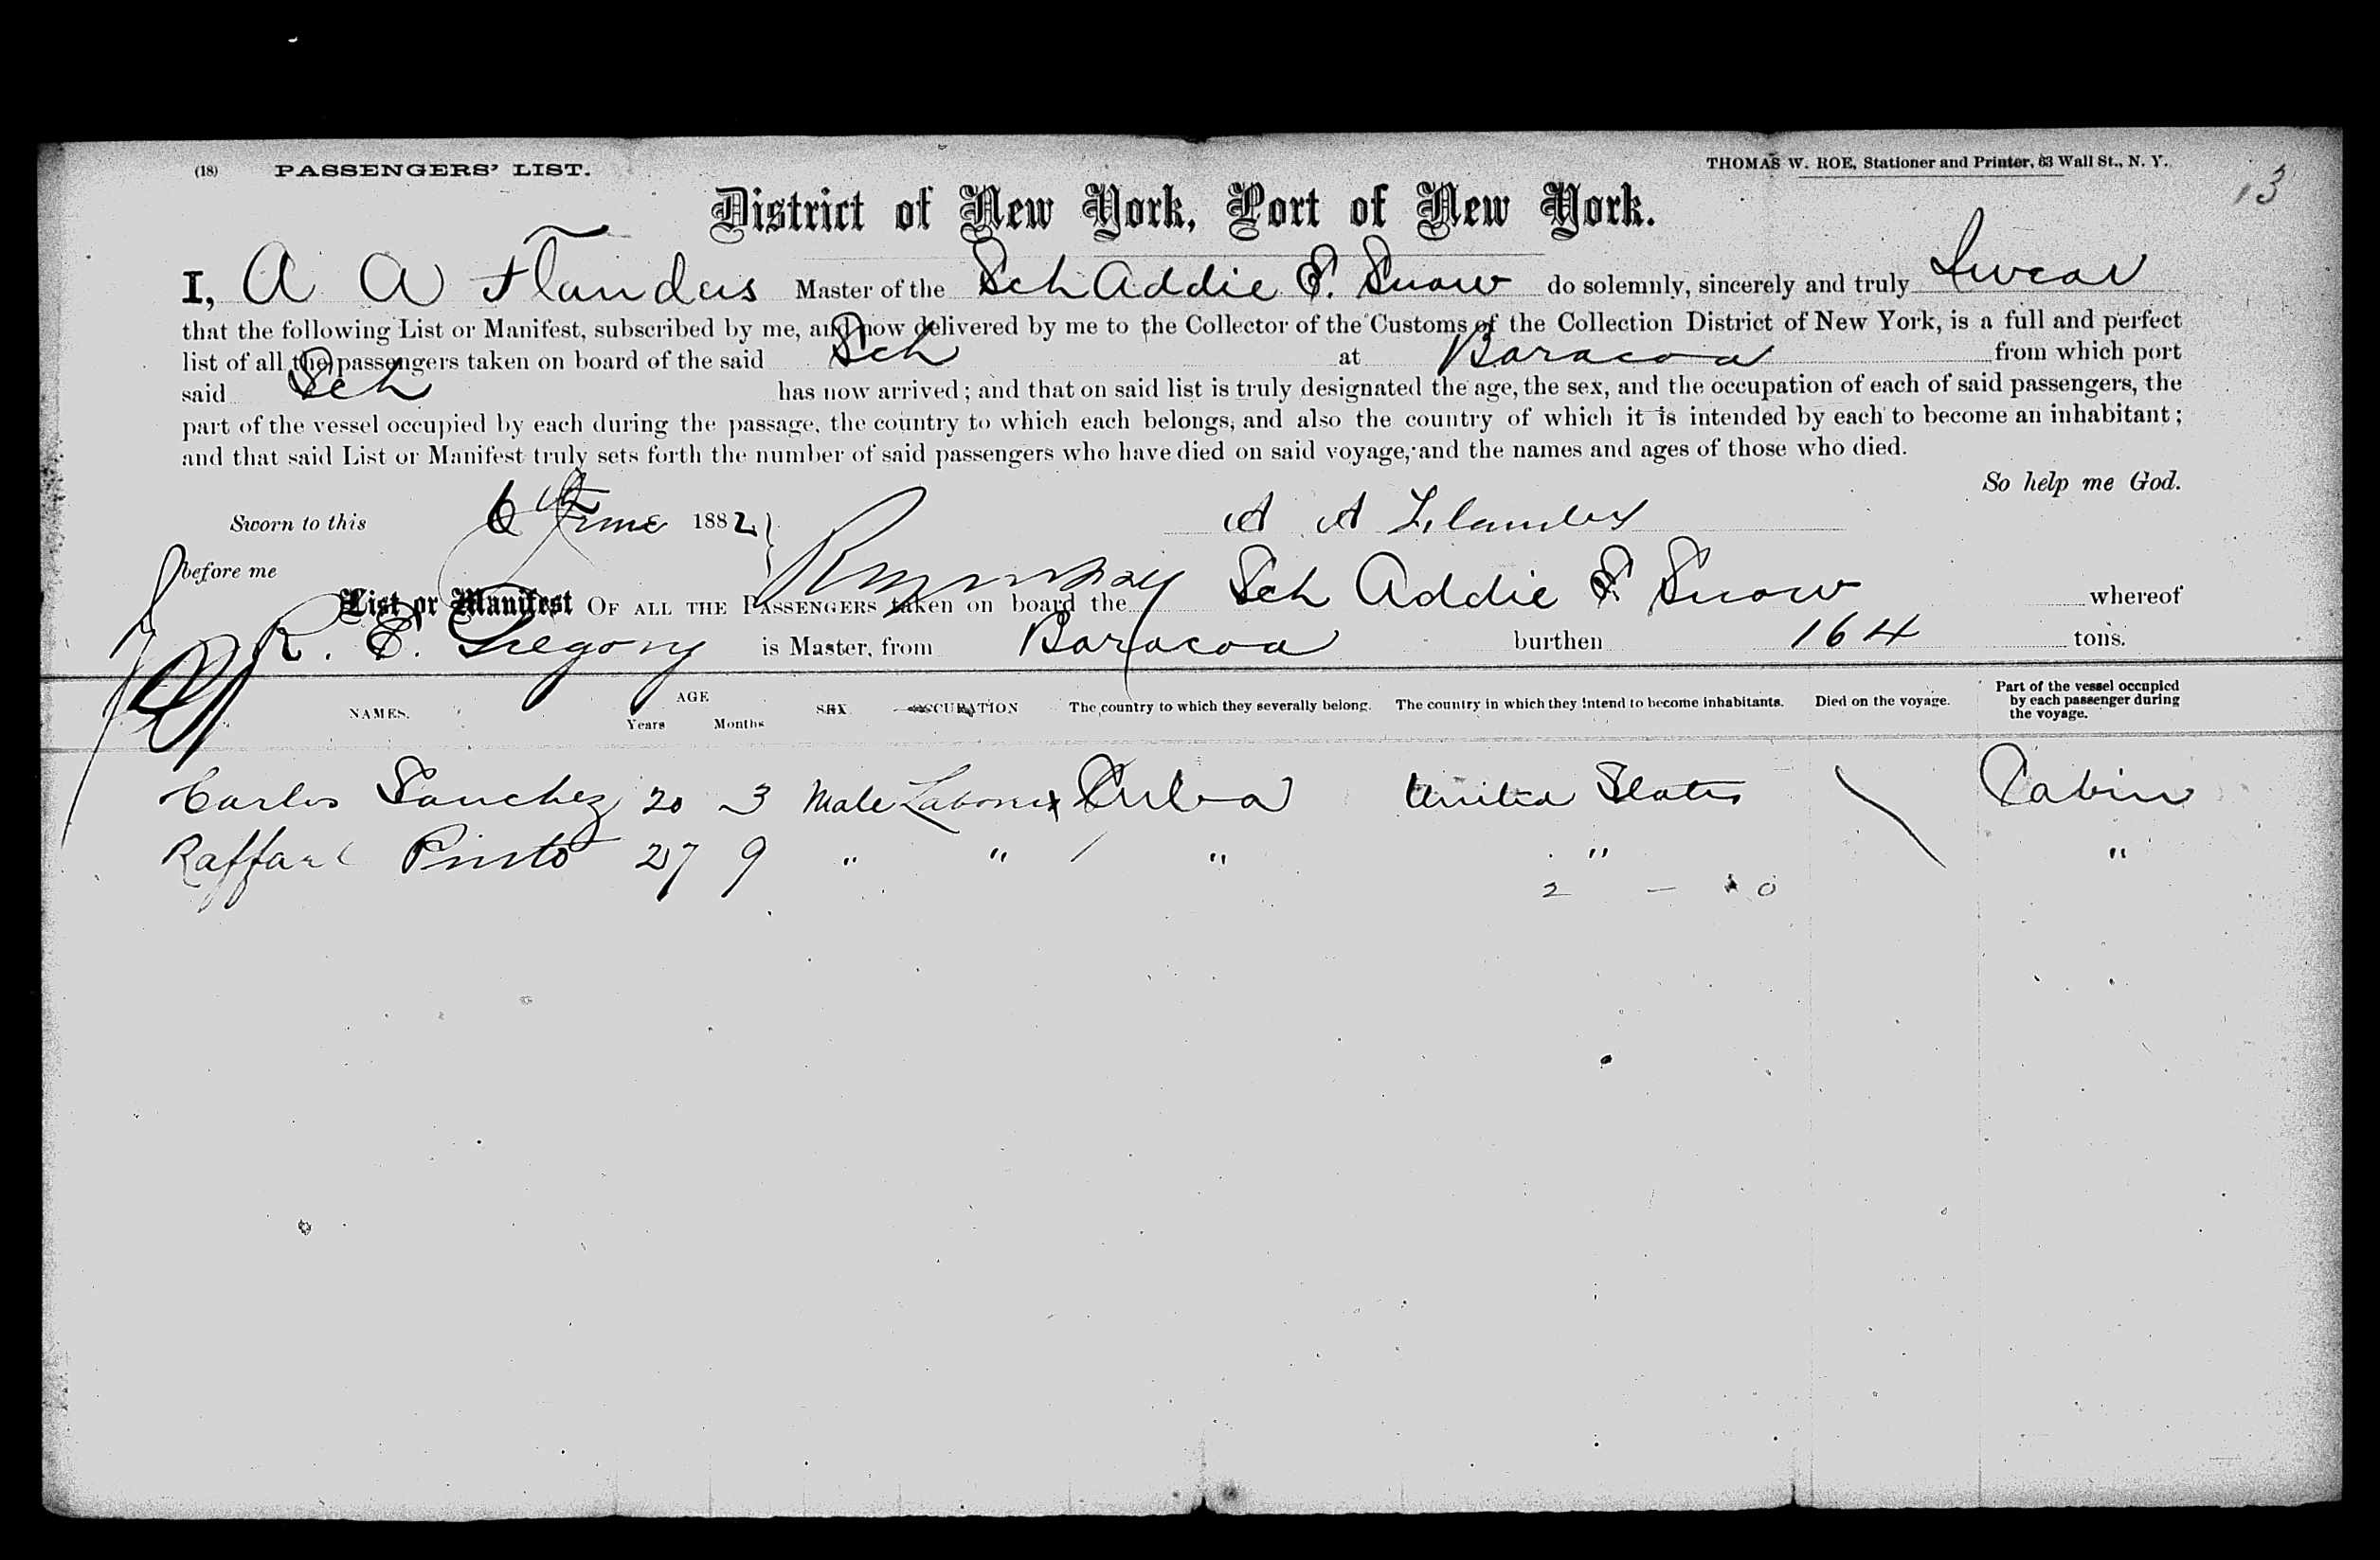 (18) PASSENGERS' LIST. THOMAS W. ROE, Stationer and Printer, 63 Wall St., N. Y.
13
District of New York, Port of New York.
I, A A Flanders Master of the Sch Addie E. Snow do solemnly, sincerely and truly Swear
that the following List or Manifest, subscribed by me, and now delivered by me to the Collector of the Customs of the Collection District of New York, is a full and perfect
list of all the passengers taken on board of the said Sch at Baracoa from which port
said Sch has now arrived; and that on said list is truly designated the age, the sex, and the occupation of each of said passengers, the
part of the vessel occupied by each during the passage, the country to which each belongs, and also the country of which it is intended by each to become an inhabitant;
and that said List or Manifest truly sets forth the number of said passengers who have died on said voyage, and the names and ages of those who died.
So help me God.
Sworn to this 6th June 1882 A A Flanders
before me
List or Manifest OF ALL THE PASSENGERS taken on board the Sch Addie E Snow whereof
R. E. Gregory is Master, from Baracoa burthen 164 tons.
NAMES. AGE Years Months SEX OCCUPATION The country to which they severally belong. The country in which they intend to become inhabitants. Died on the voyage. Part of the vessel occupied by each passenger during the voyage.
Carlos Sanchez 20 3 Male Laborer Cuba United States \ Cabin
Raffael Pinto 27 9 " " / " " "
2 — 0